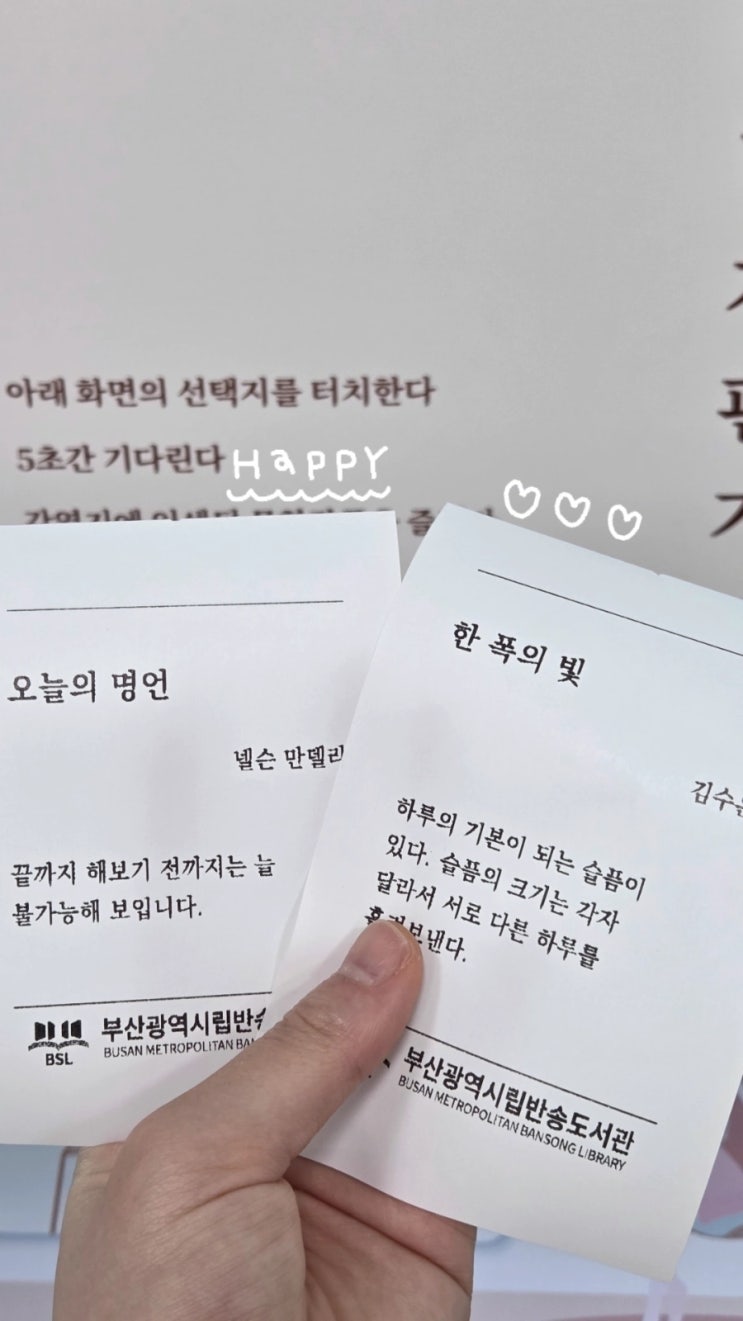 아래 화면의 선택지를 터치한다
5초간 기다린다
HAPPY
오늘의 명언
넬슨 만델라
끝까지 해보기 전까지는 늘
불가능해 보입니다.
BSL
부산광역시립반송
BUSAN METROPOLITAN
한 폭의 빛
하루의 기본이 되는 슬픔이
있다. 슬픔의 크기는 각자
달라서 서로 다른 하루를
부산광역시립반송도서관
BUSAN METROPOLITAN BANSONG LIBRARY